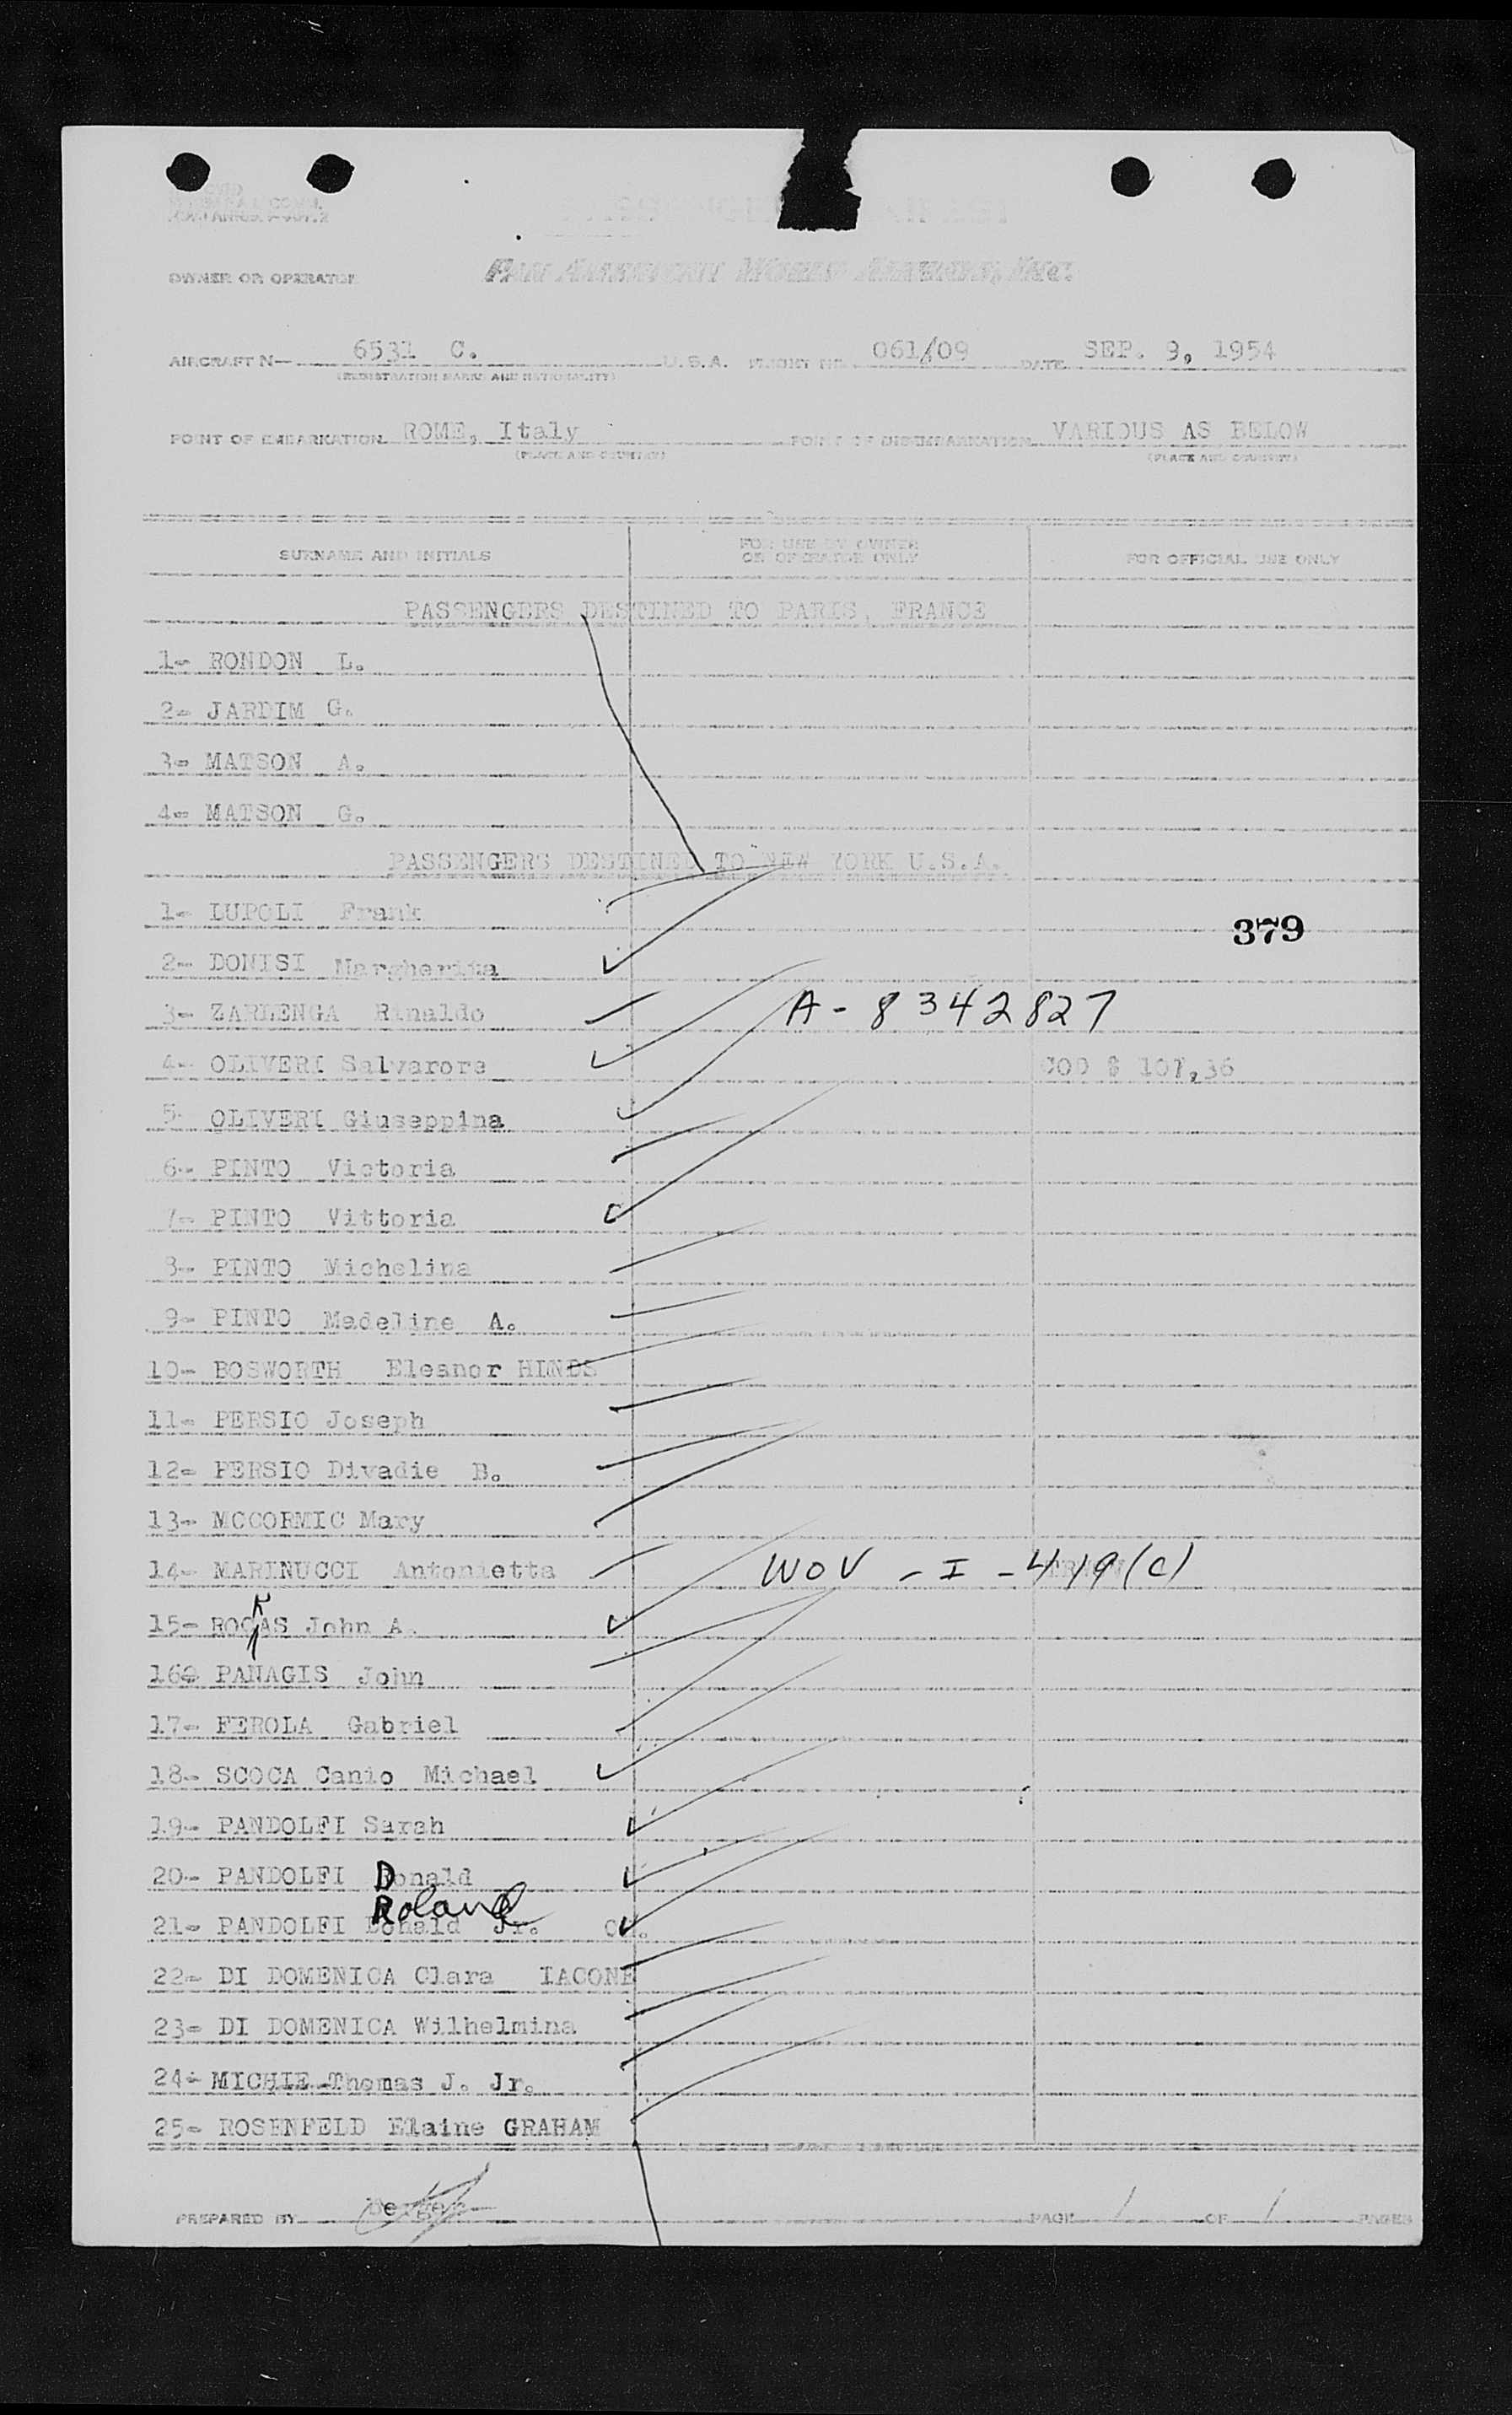 OWNER OR OPERATOR PAN AMERICAN WORLD AIRWAYS, INC.
AIRCRAFT N— 6531 C. U.S.A. FLIGHT NO. 061/09 DATE SEP. 9, 1954
(REGISTRATION MARKS AND NATIONALITY)
POINT OF EMBARKATION ROME, Italy POINT OF DISEMBARKATION VARIOUS AS BELOW
(PLACE AND COUNTRY) (PLACE AND COUNTRY)
SURNAME AND INITIALS FOR USE BY OWNER OR OPERATOR ONLY FOR OFFICIAL USE ONLY
PASSENGERS DESTINED TO PARIS, FRANCE
1- RONDON L.
2- JARDIM G.
3- MATSON A.
4- MATSON G.
PASSENGERS DESTINED TO NEW YORK U.S.A.
1- LUPOLI Frank
379
2- DONISI Margherita
3- ZARLENGA Rinaldo A-8342827
4- OLIVERI Salvarore COD $ 101,36
5- OLIVERI Giuseppina
6- PINTO Victoria
7- PINTO Vittoria
8- PINTO Michelina
9- PINTO Madeline A.
10- BOSWORTH Eleanor HINDS
11- PERSIO Joseph
12- PERSIO Divadie B.
13- MCCORMIC Mary
14- MARINUCCI Antonietta WOV - I - 419(c)
K
15- ROCAS John A.
16- PANAGIS John
17- FEROLA Gabriel
18- SCOCA Canio Michael
19- PANDOLFI Sarah
20- PANDOLFI Donald
Roland
21- PANDOLFI Donald Jr.
22- DI DOMENICA Clara IACONE
23- DI DOMENICA Wilhelmina
24- MICHIE Thomas J. Jr.
25- ROSENFELD Elaine GRAHAM
PREPARED BY PAGE 1 OF 1 PAGES